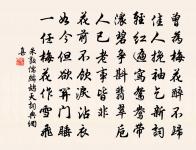 曾為梅花醉不歸
佳人挽袖乞新詞
輕紅遍寫鴛鴦帶
濃碧爭斟翡翠卮
人已老事皆非
花前不飲淚沾衣
如今但欲關門睡
一任梅花作雪飛
朱敦儒鷓鴣天詞